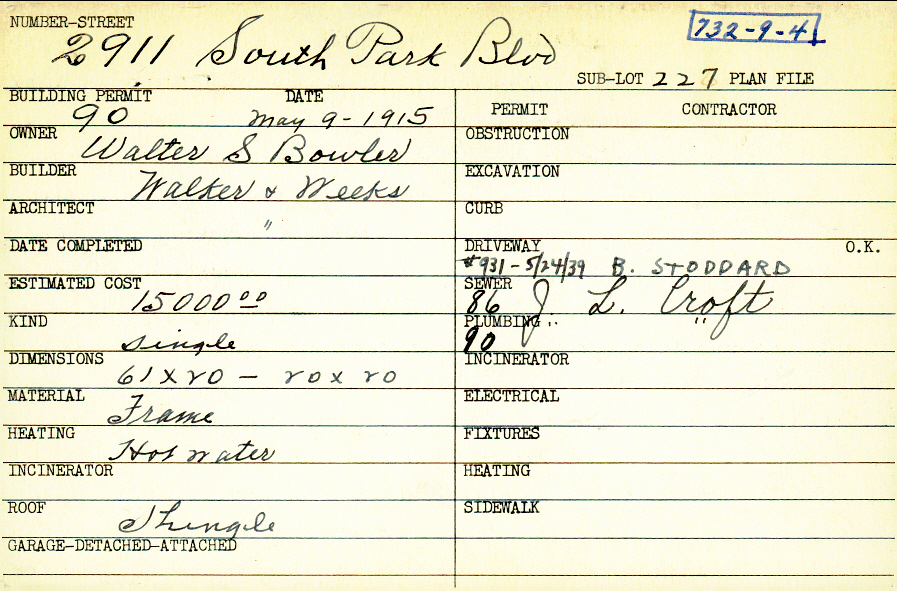 NUMBER-STREET
2911 South Park Blvd
732-9-4
SUB-LOT 227 PLAN FILE
BUILDING PERMIT DATE
90 May 9-1915
OWNER
Walter S Bowler
BUILDER
Walker & Weeks
ARCHITECT
"
DATE COMPLETED
ESTIMATED COST
15000 00
KIND
single
DIMENSIONS
61 x 20 - 20 x 20
MATERIAL
Frame
HEATING
Hot water
INCINERATOR
ROOF
Shingle
GARAGE-DETACHED-ATTACHED
PERMIT CONTRACTOR
OBSTRUCTION
EXCAVATION
CURB
DRIVEWAY O.K.
#931-5/24/39 B. STODDARD
SEWER
86 J. L. Croft
PLUMBING " "
90
INCINERATOR
ELECTRICAL
FIXTURES
HEATING
SIDEWALK